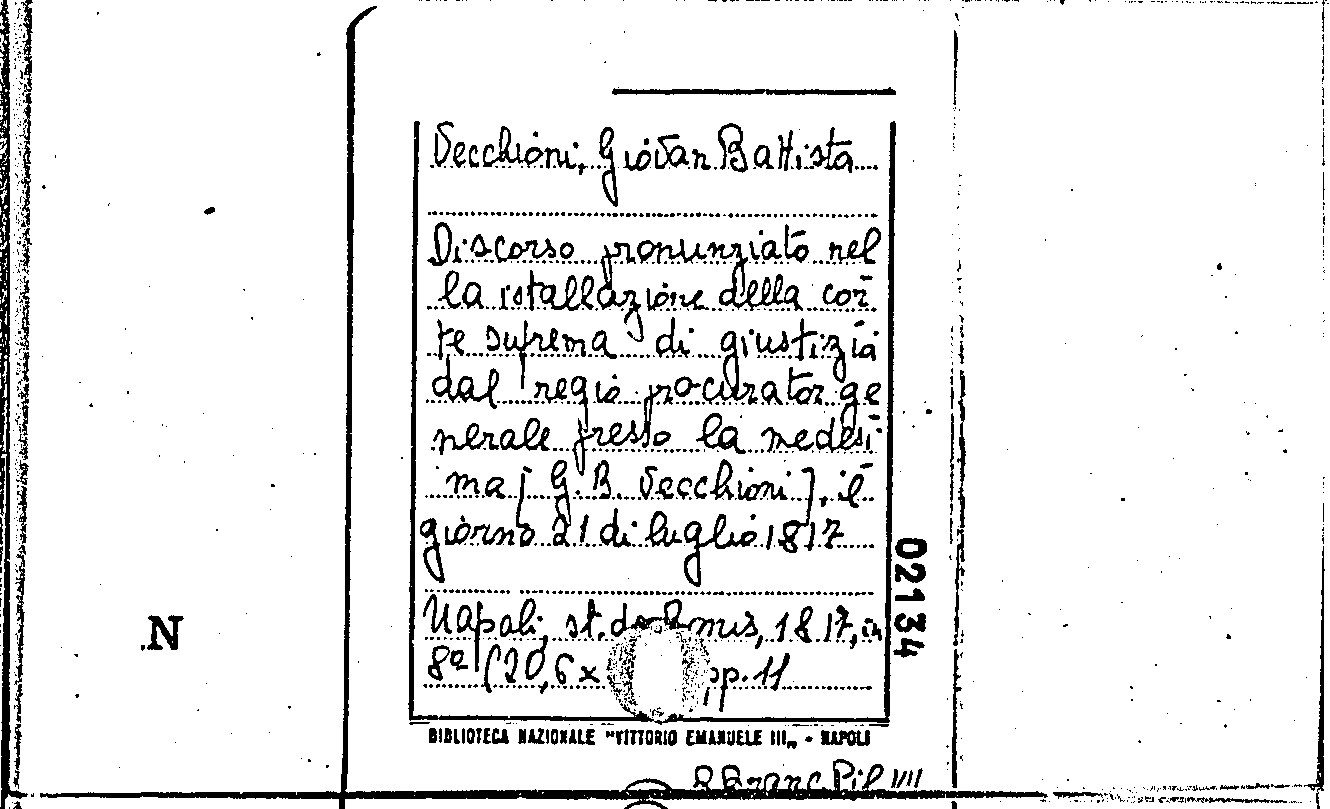 Vecchioni, Giovan Battista
Discorso pronunziato nel
la istallazione della cor
te suprema di giustizia
dal regio procurator ge
nerale presso la medesi
ma [G. B. Vecchioni], il
giorno 21 di luglio 1817
Napoli, st. de 1817, in
8º (20,6 x pp. 11
02134
N
BIBLIOTECA NAZIONALE "VITTORIO EMANUELE III„ - NAPOLI